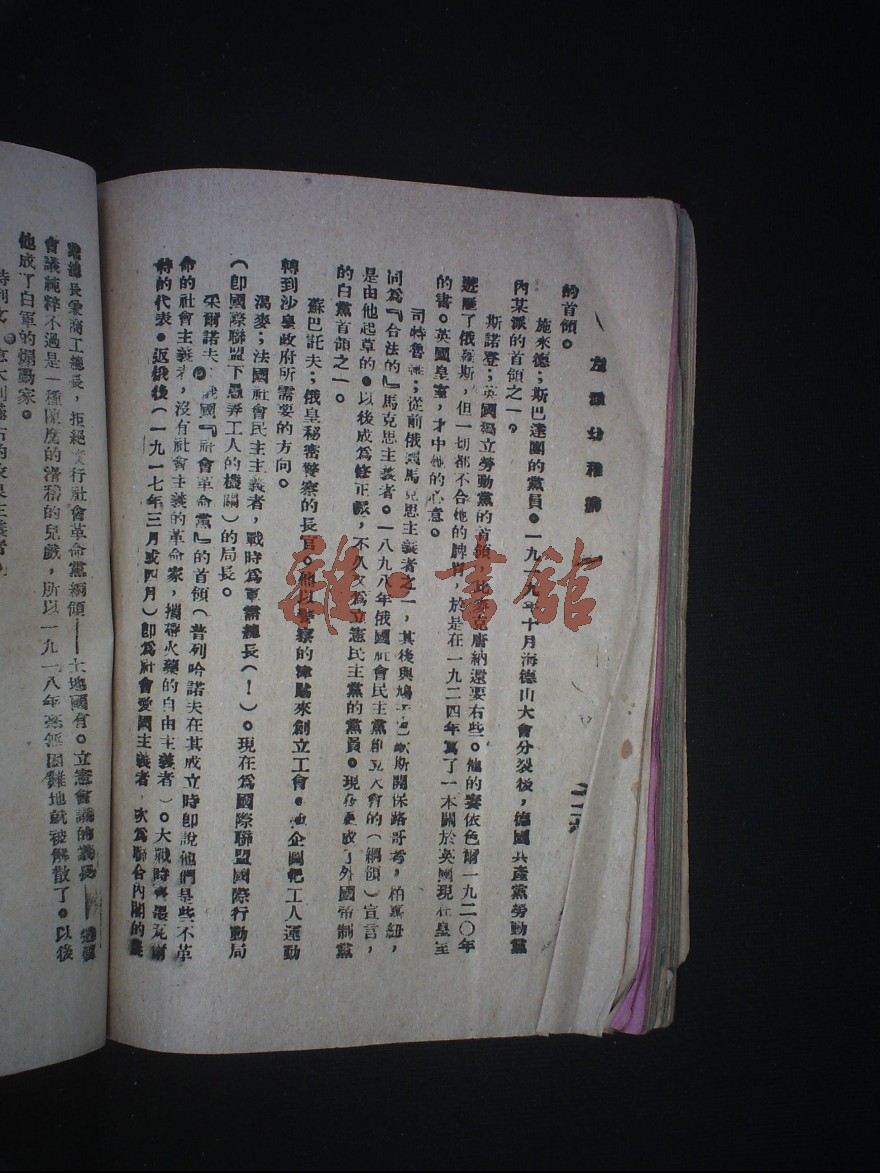 左派幼稚病
的首領。
施來德；斯巴達團的黨員。一九一九年十月海德山大會分裂後，德國共產黨勞動黨
內某派的首領之一。
斯諾登；英國獨立勞動黨的首領，此麥克唐納還要右些。他的妻依色爾一九二〇年
遊歷了俄羅斯，但一切都不合她的脾胃，於是在一九二四年寫了一本關於英國現在皇室
的書。英國皇室，才中她的心意。
司特魯維；從前俄國馬克思主義者之一，其後與
同為『合法的』馬克思主義者。一八九八年俄國社會民主黨創立大會的（綱領）宣言，
是由他起草的。以後成為修正派，不久又為立憲民主黨的黨員。現在更成了外國帝制黨
的白黨首領之一。
蘇巴托夫；俄皇秘密警察的長官。他以警察的津貼來創立工會。他企圖把工人運動
轉到沙皇政府所需要的方向。
湯麥；法國社會民主主義者，戰時為軍需總長（！）。現在為國際聯盟國際行動局
（即國際聯盟下愚弄工人的機關）的局長。
采爾諾夫；俄國『社會革命黨』的首領（普列哈諾夫在其成立時即說他們是些不革
命的社會主義者，沒有社會主義的革命家，攜帶火藥的自由主義者）。大戰時
的代表。返俄後（一九一七年三月或四月）即為社會愛國主義者，次為聯合內閣的農
總長兼商工總長，拒絕實行社會革命黨綱領——土地國有。立憲會議的議長——
會議純粹不過是一種陳腐的滑稽的兒戲，所以一九一八年毫無困難地就被解散了。以後
他成了白軍的煽動家。
雜·書館